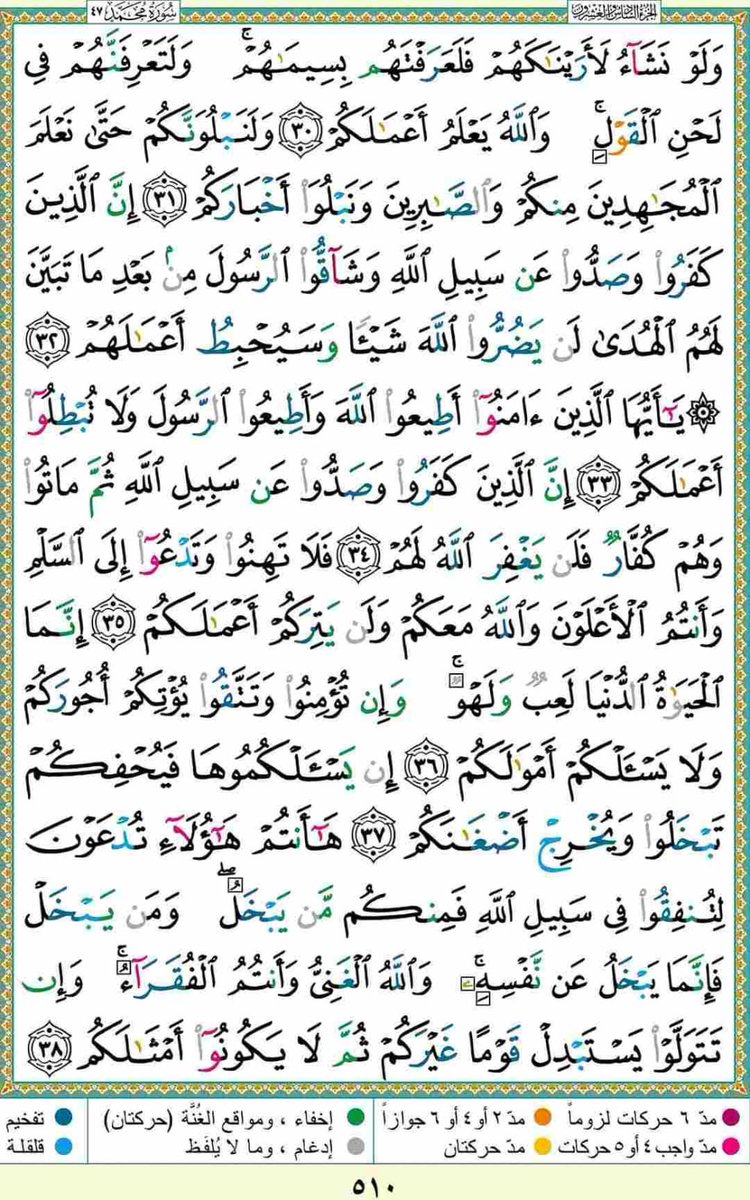 الجزء السادس والعشرون سورة محمد ٤٧
وَلَوْ نَشَآءُ لَأَرَيْنَٰكَهُمْ فَلَعَرَفْتَهُم بِسِيمَٰهُمْ ۚ وَلَتَعْرِفَنَّهُمْ فِى
لَحْنِ ٱلْقَوْلِ ۚ وَٱللَّهُ يَعْلَمُ أَعْمَٰلَكُمْ ٣٠ وَلَنَبْلُوَنَّكُمْ حَتَّىٰ نَعْلَمَ
ٱلْمُجَٰهِدِينَ مِنكُمْ وَٱلصَّٰبِرِينَ وَنَبْلُوَا۟ أَخْبَارَكُمْ ٣١ إِنَّ ٱلَّذِينَ
كَفَرُوا۟ وَصَدُّوا۟ عَن سَبِيلِ ٱللَّهِ وَشَآقُّوا۟ ٱلرَّسُولَ مِنۢ بَعْدِ مَا تَبَيَّنَ
لَهُمُ ٱلْهُدَىٰ لَن يَضُرُّوا۟ ٱللَّهَ شَيْـًٔا وَسَيُحْبِطُ أَعْمَٰلَهُمْ ٣٢
۞ يَٰٓأَيُّهَا ٱلَّذِينَ ءَامَنُوٓا۟ أَطِيعُوا۟ ٱللَّهَ وَأَطِيعُوا۟ ٱلرَّسُولَ وَلَا تُبْطِلُوٓا۟
أَعْمَٰلَكُمْ ٣٣ إِنَّ ٱلَّذِينَ كَفَرُوا۟ وَصَدُّوا۟ عَن سَبِيلِ ٱللَّهِ ثُمَّ مَاتُوا۟
وَهُمْ كُفَّارٌ فَلَن يَغْفِرَ ٱللَّهُ لَهُمْ ٣٤ فَلَا تَهِنُوا۟ وَتَدْعُوٓا۟ إِلَى ٱلسَّلْمِ
وَأَنتُمُ ٱلْأَعْلَوْنَ وَٱللَّهُ مَعَكُمْ وَلَن يَتِرَكُمْ أَعْمَٰلَكُمْ ٣٥ إِنَّمَا
ٱلْحَيَوٰةُ ٱلدُّنْيَا لَعِبٌ وَلَهْوٌ ۚ وَإِن تُؤْمِنُوا۟ وَتَتَّقُوا۟ يُؤْتِكُمْ أُجُورَكُمْ
وَلَا يَسْـَٔلْكُمْ أَمْوَٰلَكُمْ ٣٦ إِن يَسْـَٔلْكُمُوهَا فَيُحْفِكُمْ
تَبْخَلُوا۟ وَيُخْرِجْ أَضْغَٰنَكُمْ ٣٧ هَٰٓأَنتُمْ هَٰٓؤُلَآءِ تُدْعَوْنَ
لِتُنفِقُوا۟ فِى سَبِيلِ ٱللَّهِ فَمِنكُم مَّن يَبْخَلُ ۖ وَمَن يَبْخَلْ
فَإِنَّمَا يَبْخَلُ عَن نَّفْسِهِۦ ۚ وَٱللَّهُ ٱلْغَنِىُّ وَأَنتُمُ ٱلْفُقَرَآءُ ۚ وَإِن
تَتَوَلَّوْا۟ يَسْتَبْدِلْ قَوْمًا غَيْرَكُمْ ثُمَّ لَا يَكُونُوٓا۟ أَمْثَٰلَكُم ٣٨
مدّ ٦ حركات لزوماً مدّ ٢ أو ٤ أو ٦ جوازاً إخفاء ، ومواقع الغُنَّة (حركتان) تفخيم
مدّ واجب ٤ أو ٥ حركات مدّ حركتان إدغام ، وما لا يُلفَظ قلقلة
٥١٠